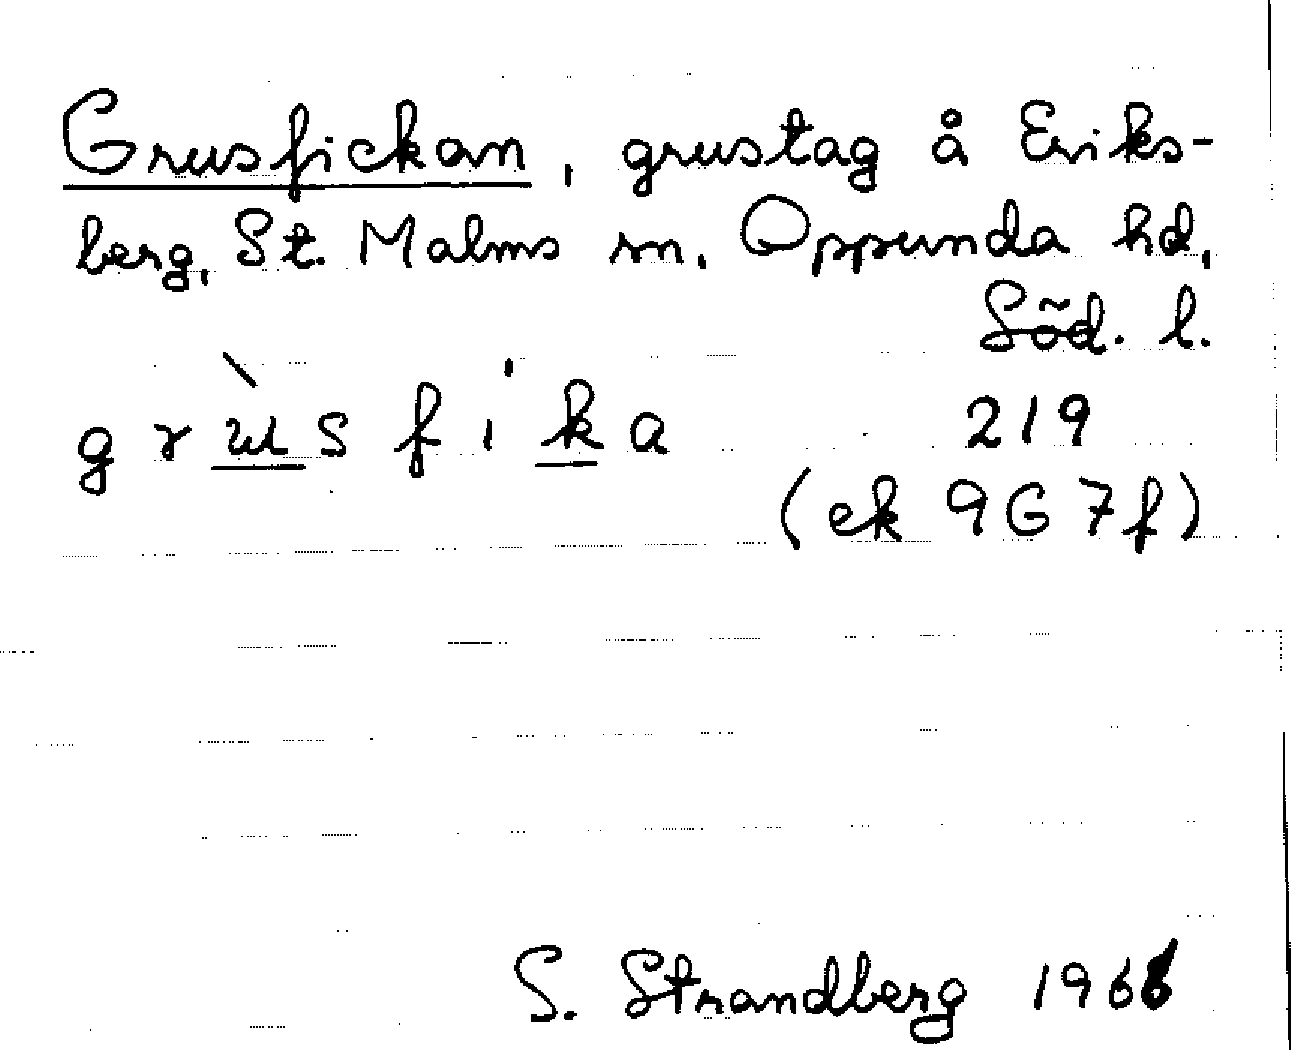 Grusfickan, grustag å Eriks-
berg, St. Malms sn, Oppunda hd,
Söd. l.
grùsfıka
219
(ek 9G 7f)
S. Strandberg 1966